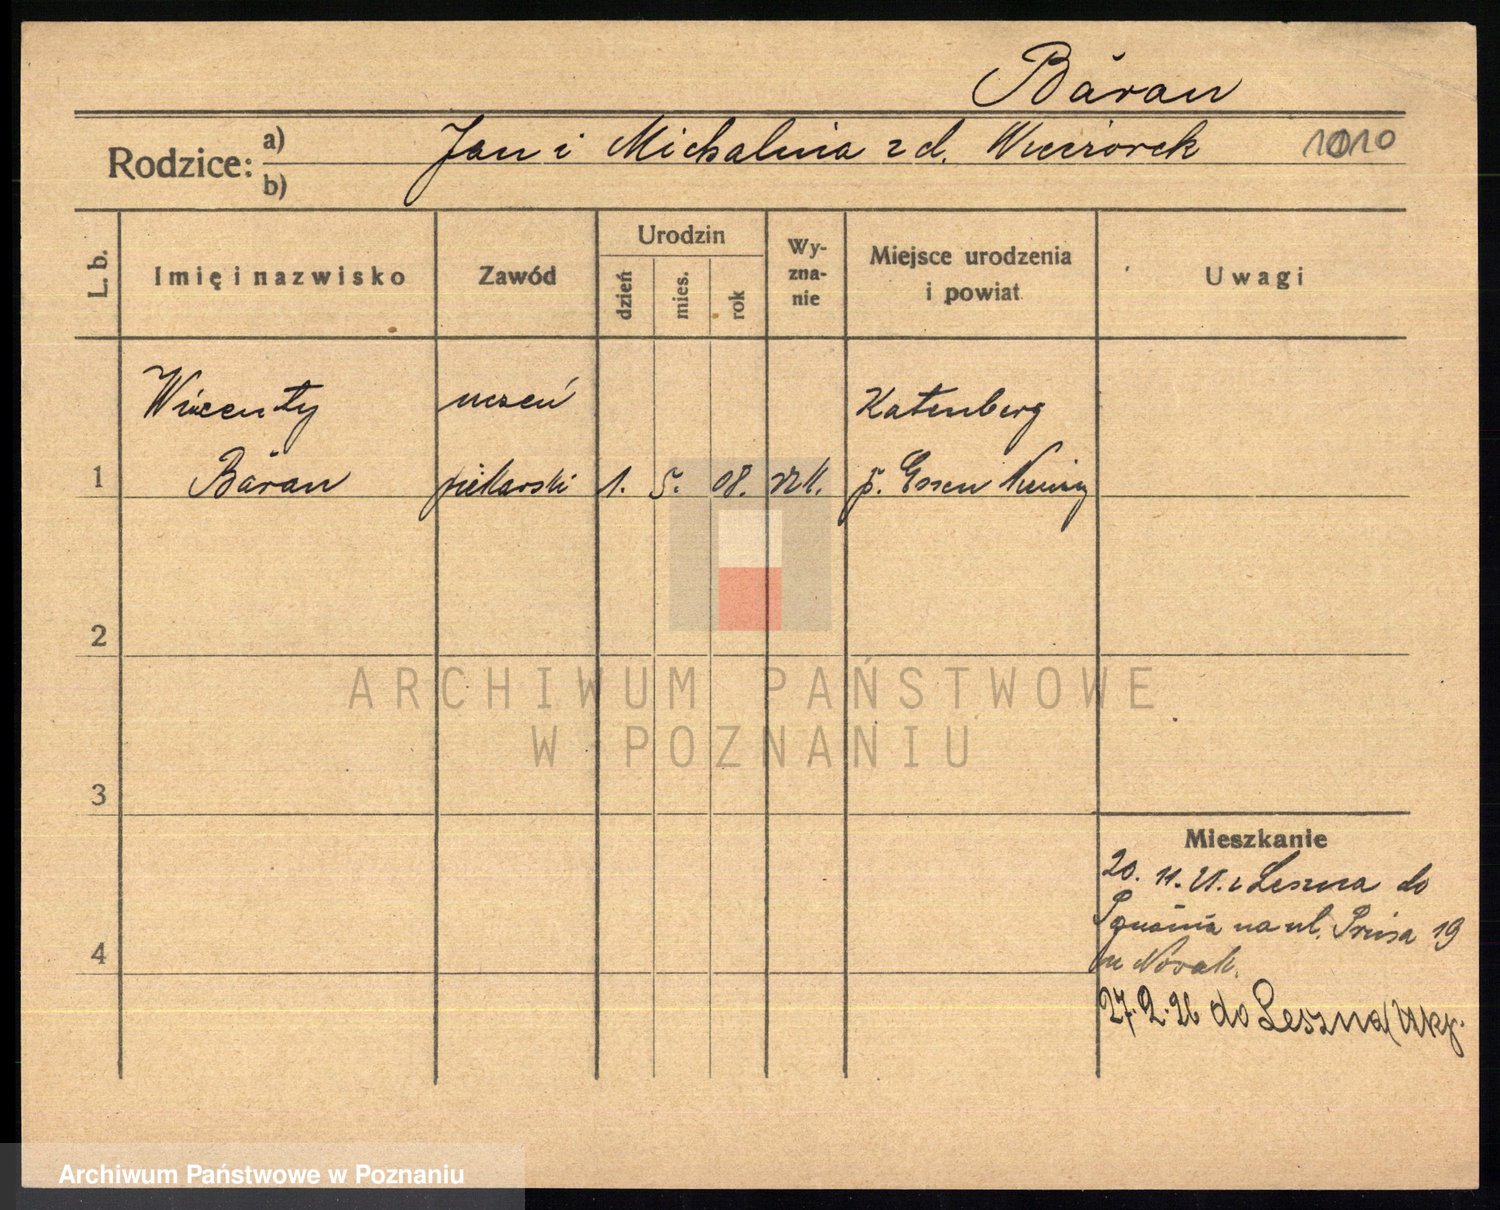 Băran
Rodzice: a) Jan i Michalina z d. Wieczorek 1010
b)
L. b. Imię i nazwisko Zawód Urodzin dzień mies. rok Wy-zna-nie Miejsce urodzenia i powiat Uwagi
Wincenty uczeń Katenberg
1 Băran piekarski 1. 5. 08. rzk. p. Essen
2
ARCHIWUM PAŃSTWOWE
W POZNANIU
3
Mieszkanie
20. 11. 21. z Leszna do
Poznania na ul. Prusa 19
4
u Novak.
27. 2. 26 do Leszna
Archiwum Państwowe w Poznaniu